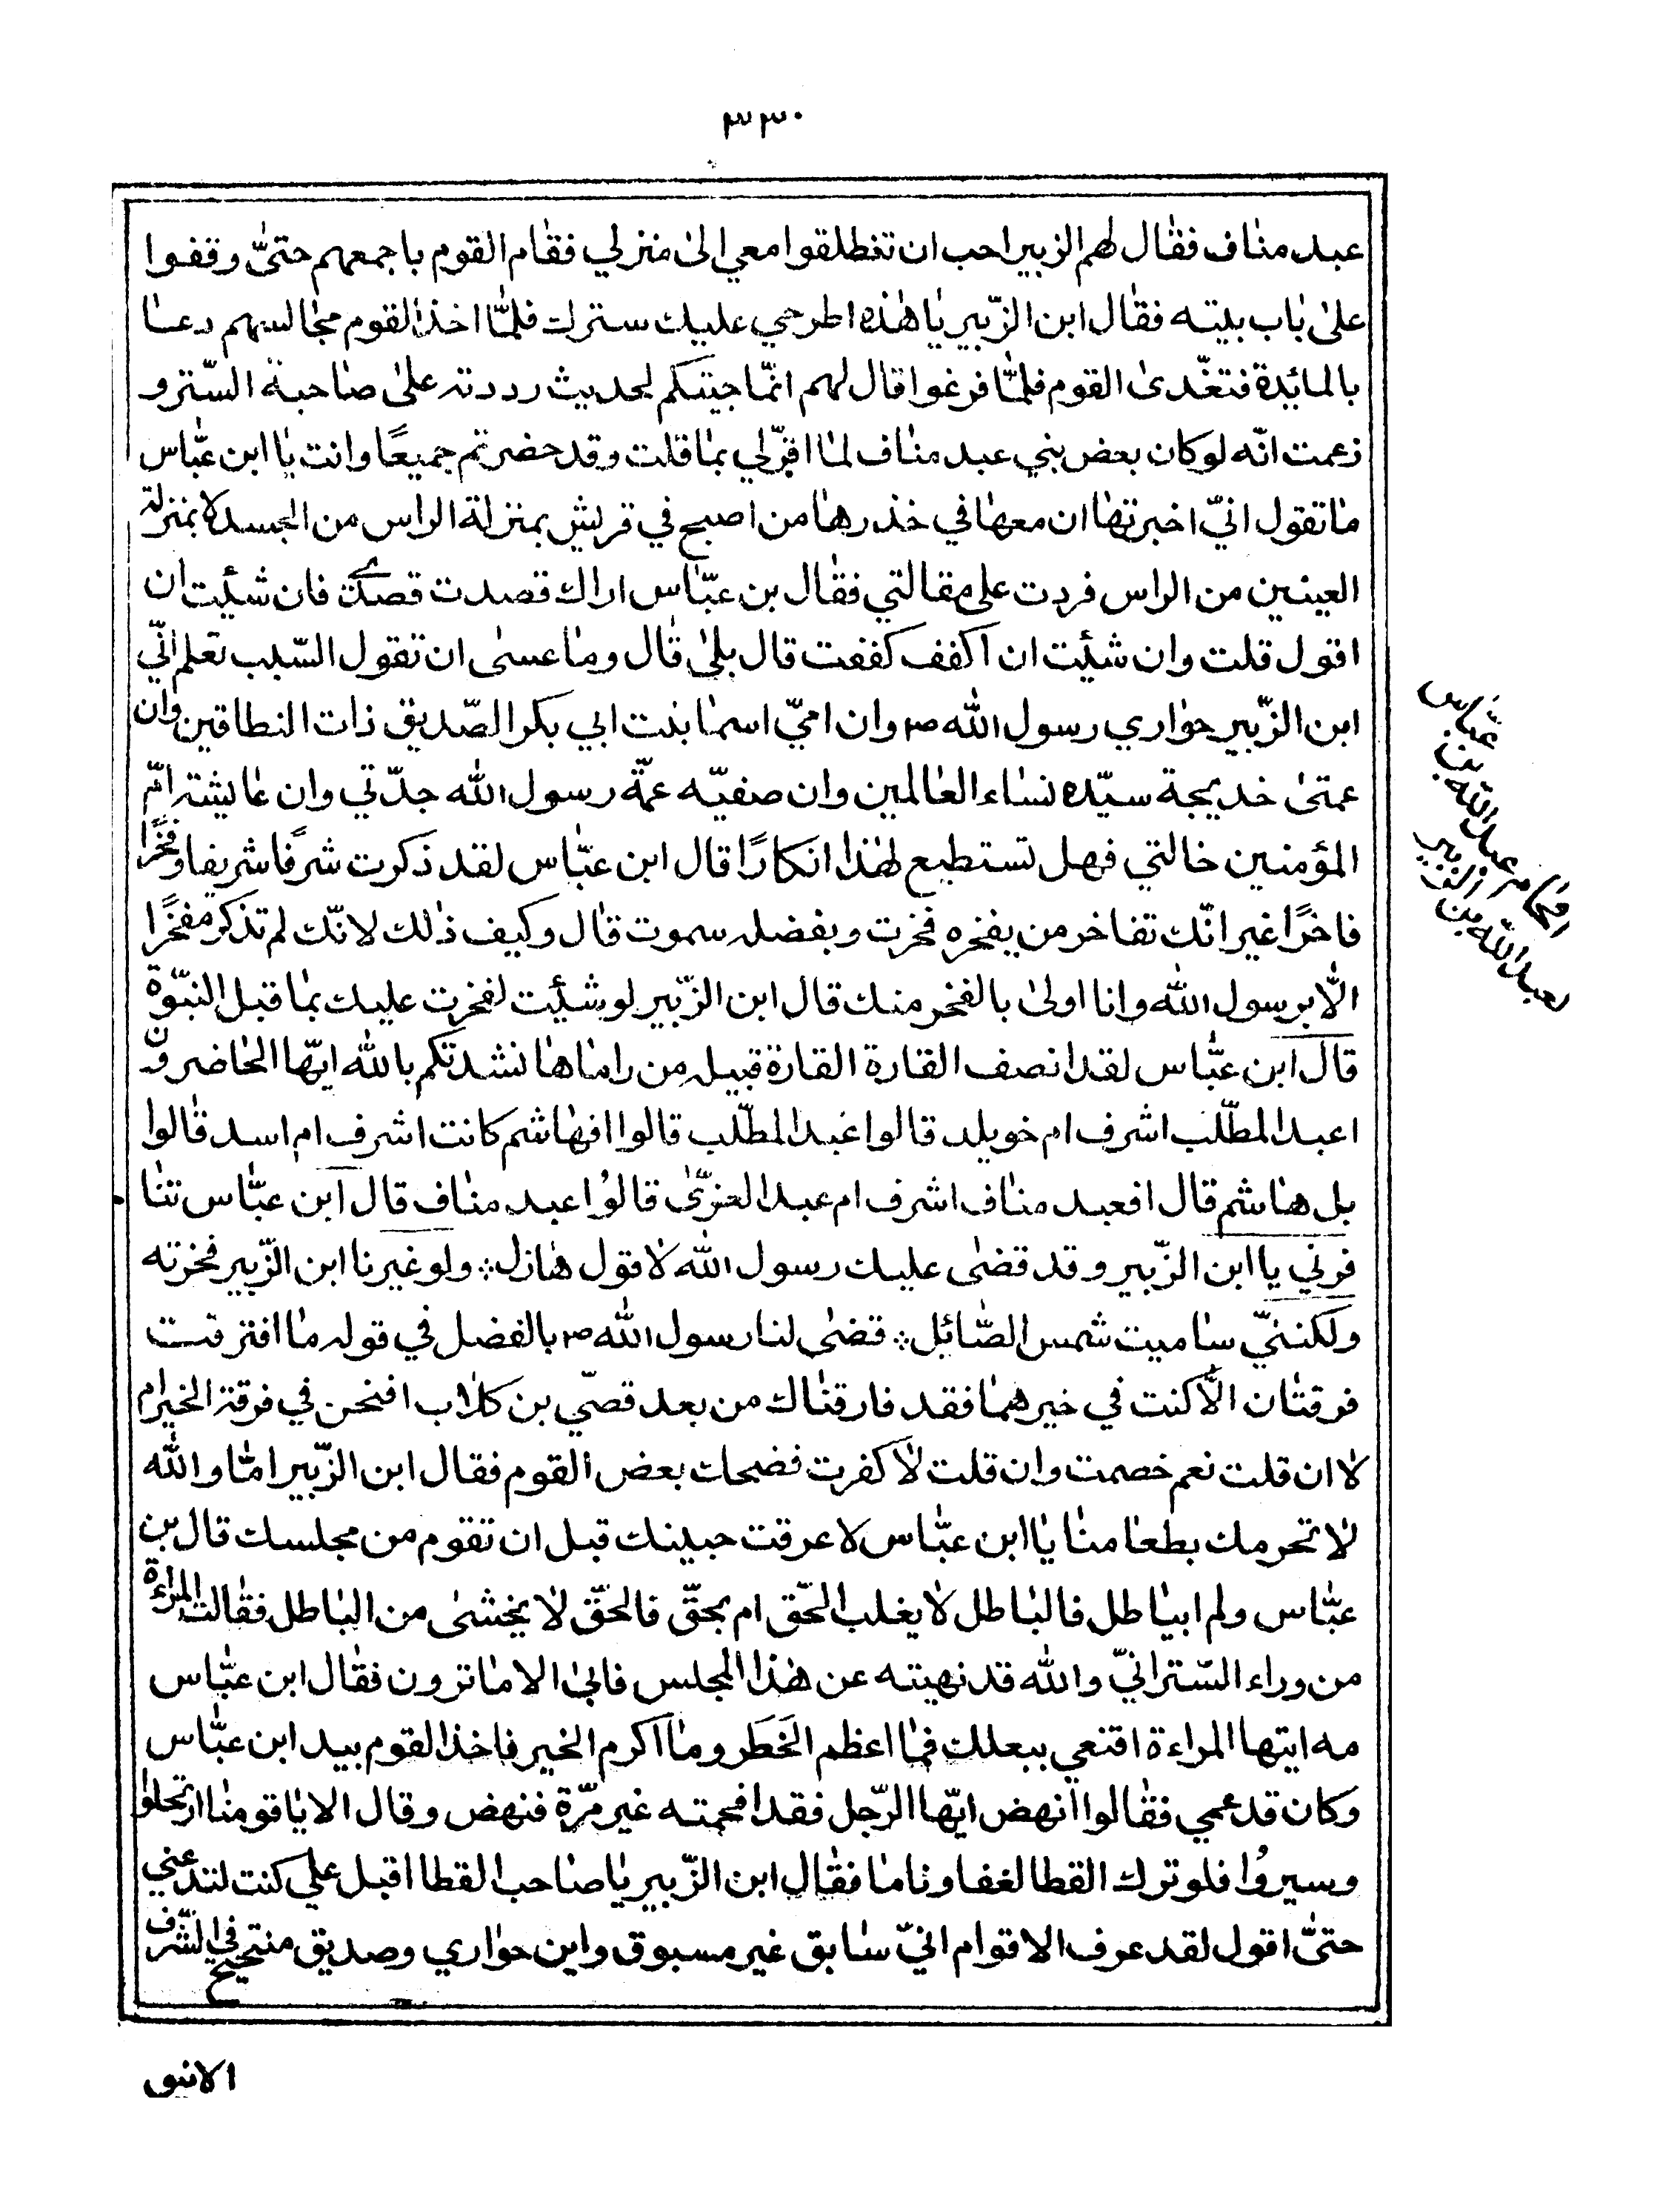 ٣٣٠
عبد مناف فقال لهم الزبير احب ان تنطلقوا معي الى منزلي فقام القوم باجمعهم حتىّ وقفوا
على باب بيته فقال ابن الزّبير يا هذه اطرحي عليك سترك فلمّا اخذ القوم مجالسهم دعا
بالمائدة فتغّدى القوم فلمّا فرغوا قال لهم انمّا جيتكم لحديث رددته على صاحبة السّتر و
زعمت انّه لو كان بعض بني عبد مناف لما اقرّ لي بما قلت وقد حضرتم جميعًا وانت يا ابن عبّاس
ما تقول انيّ اخبرتها ان معها في خذرها من اصبح في قريش بمنزلة الراس من الجسد لا بمنزلة
العينين من الراس فردت علي مقالتي فقال بن عبّاس اراك قصدت قصدي فان شئيت ان
اقول قلت وان شئيت ان اكفف كففت قال بلى قال وما عسى ان تقول السّبب تعلم انيّ
ابن الزّبير حواري رسول الله ص وان اميّ اسما بنت ابي بكر الصّديق ذات النطاقين وان
عمتى خديجة سيّده نساء العالمين وان صفيّه عمّة رسول الله جدّتي وان عايشته امّ
المؤمنين خالتي فهل تستطيع لهذا انكارًا قال ابن عبّاس لقد ذكرت شرفًا شريفا وفخرًا
فاخرًا غير انّك تفاخر من بفخره فخرت وبفضله سموت قال وكيف ذلك لانّك لم تذكر مفخرًا
الّا برسول الله وانا اولى بالفخر منك قال ابن الزّبير لو شئيت لفخرت عليك بما قبل النبّوة
قال ابن عبّاس لقد انصف القارة القارة قبيله من راماها نشدتكم بالله ايّها الحاضرون
اعبد المطّلب اشرف ام خويلد قالوا عبد المطّلب قالوا افهاشم كانت اشرف ام اسد قالوا
بل هاشم قال افعبد مناف اشرف ام عبد العزّى قالوا عبد مناف قال ابن عبّاس تنا
فرني يا ابن الزّبير وقد قضى عليك رسول الله لا قول هازل ولو غيرنا ابن الزّبير فخرته
ولكننيّ ساميت شمس الصّائل قضى لنا رسول الله ص بالفضل في قوله ما افترقت
فرقتان الّا كنت في خيرهما فقد فارقناك من بعد قصّي بن كلاب افنحن في فرقة الخير ام
لا ان قلت نعم خصمت وان قلت لا كفرت فضحك بعض القوم فقال ابن الزّبير امّا والله
لا تحرمك بطعامنا يا ابن عبّاس لا عرقت جبينك قبل ان تقوم من مجلسك قال بن
عبّاس ولم ابباطل فالباطل لا يغلب الحّق ام بحقّ فالحقّ لا يخشى من الباطل فقالت المراءة
من وراء السّتر انيّ والله قد نهيته عن هذا المجلس فابى الا ما ترون فقال ابن عبّاس
مه ايتها المراءة اقنعي ببعلك فما اعظم الخَطَر وما اكرم الخير فاخذ القوم بيد ابن عبّاس
وكان قد عمي فقالوا انهض ايّها الرّجل فقد افحمته غير مرّة فنهض وقال الا يا قومنا ارتحلوا
وسيروُا فلو ترك القطا لغفا وناما فقال ابن الزّبير يا صاحب القطا اقبل علي كنت لتدعني
حتىّ اقول لقد عرف الاقوام انيّ سابق غير مسبوق وابن حواري وصديق منتجيح في الشرف
الانيق
افحام عبد الله بن عبّاس
لعبد الله بن الزبير